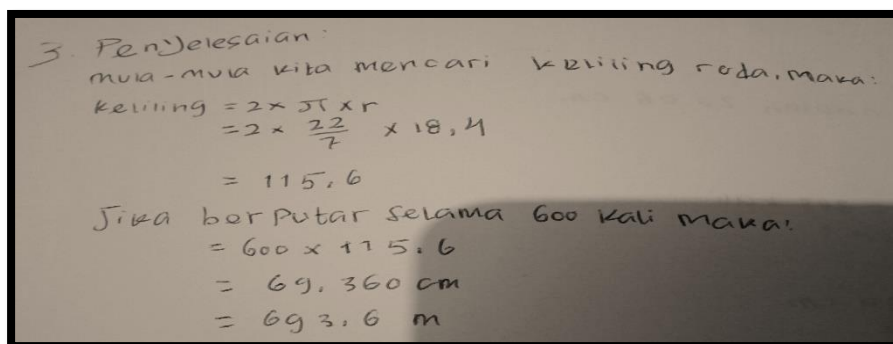 3. Penyelesaian:
mula-mula kita mencari keliling roda, maka:
Keliling = 2 × π × r
= 2 × 22/7 × 18,4
= 115,6
Jika berputar selama 600 kali maka:
= 600 × 115,6
= 69.360 cm
= 693,6 m